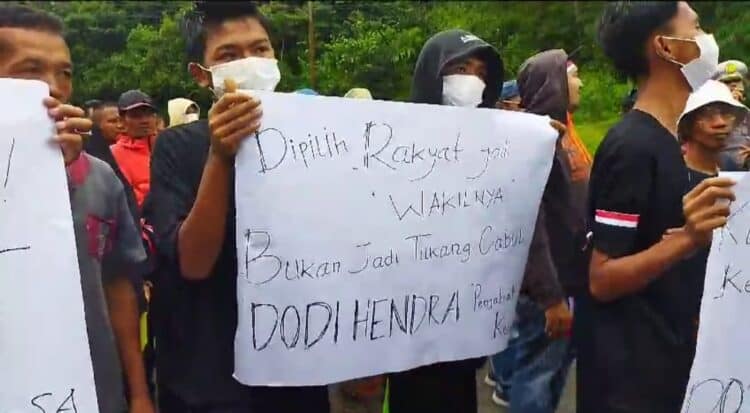 Dipilih Rakyat jadi
"WAKILNYA"
Bukan Jadi Tukang Cabul
DODI HENDRA "Penjahat
Ke
SA